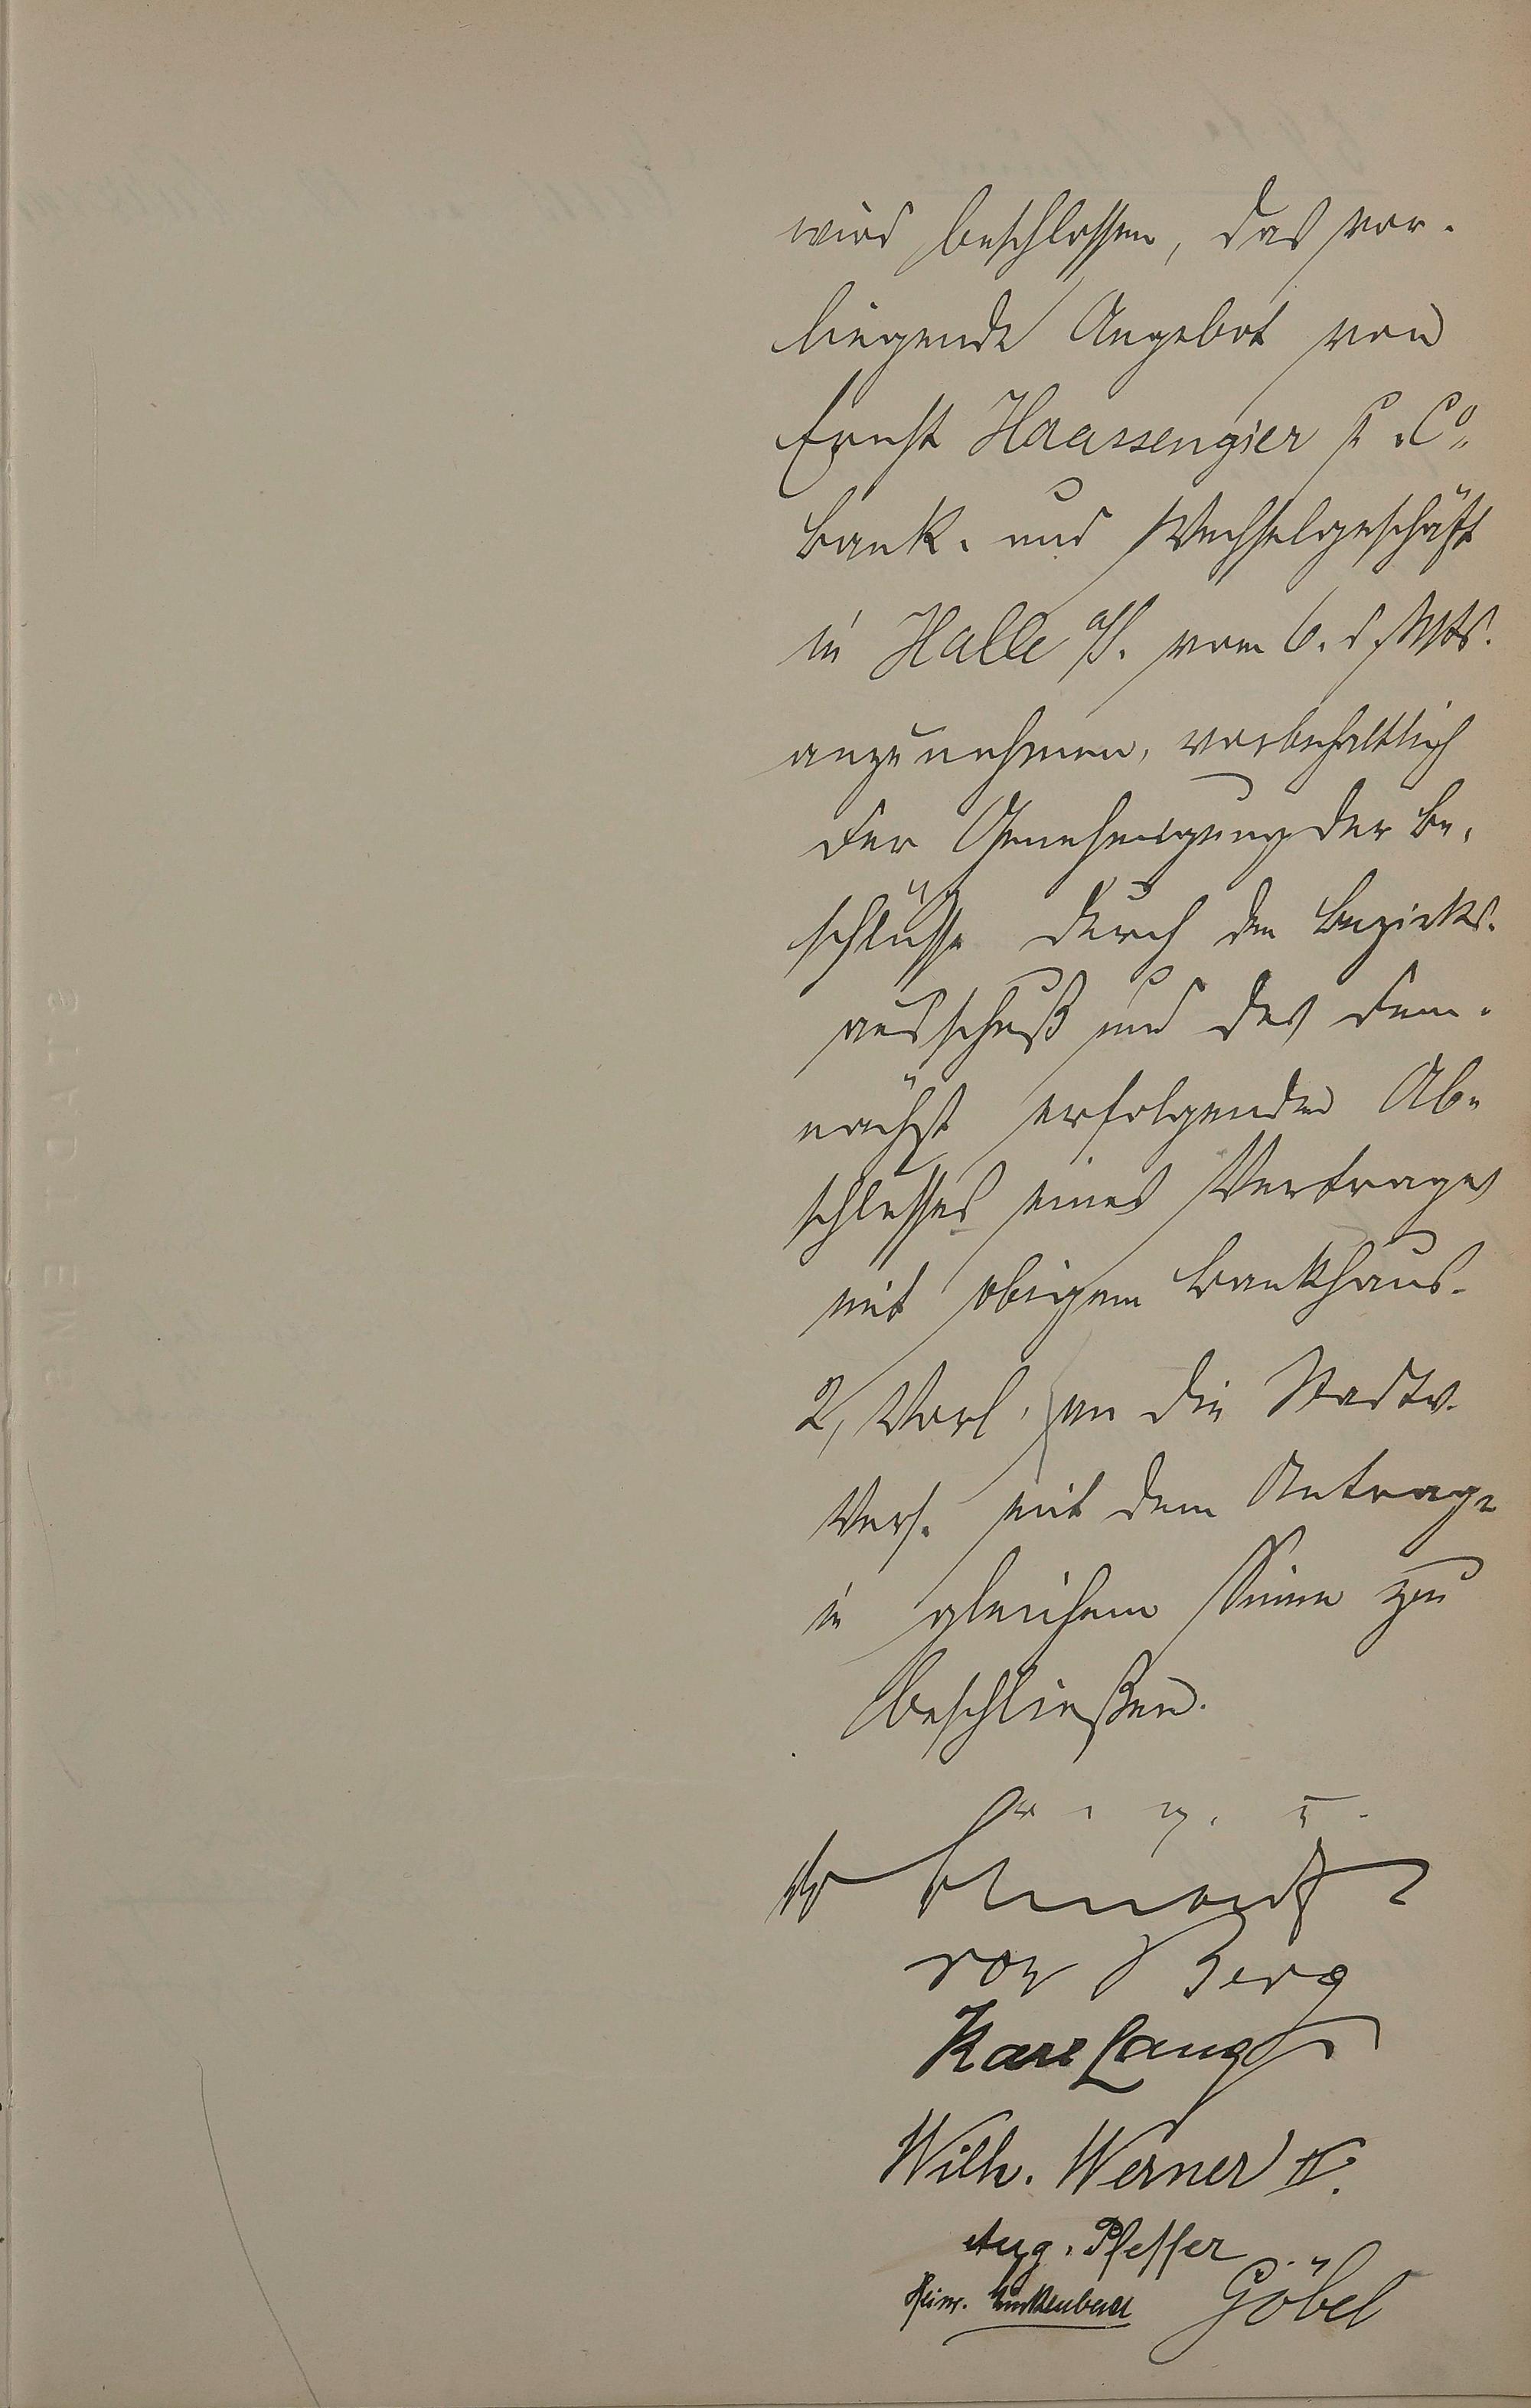 wird beschlossen, das vor-
liegende Angebot von
Ernst Haassengier & Co.
Bank- und Wechselgeschäft
in Halle a/S. vom 6. d. Mts.
anzunehmen, vorbehaltlich
der Genehmigung der Be-
schlüsse durch den Bezirks-
ausschuß und des dem-
nächst erfolgenden Ab-
schlusses eines Vertrages
mit obigem Bankhaus.
2, Vorl. an die Stadtv.
Vers. mit dem Antrage
in gleichem Sinne zu
beschließen.
von Berg
Karl Lang
Wilh. Werner IV.
Aug. Pfeffer
Heinr. Göbel